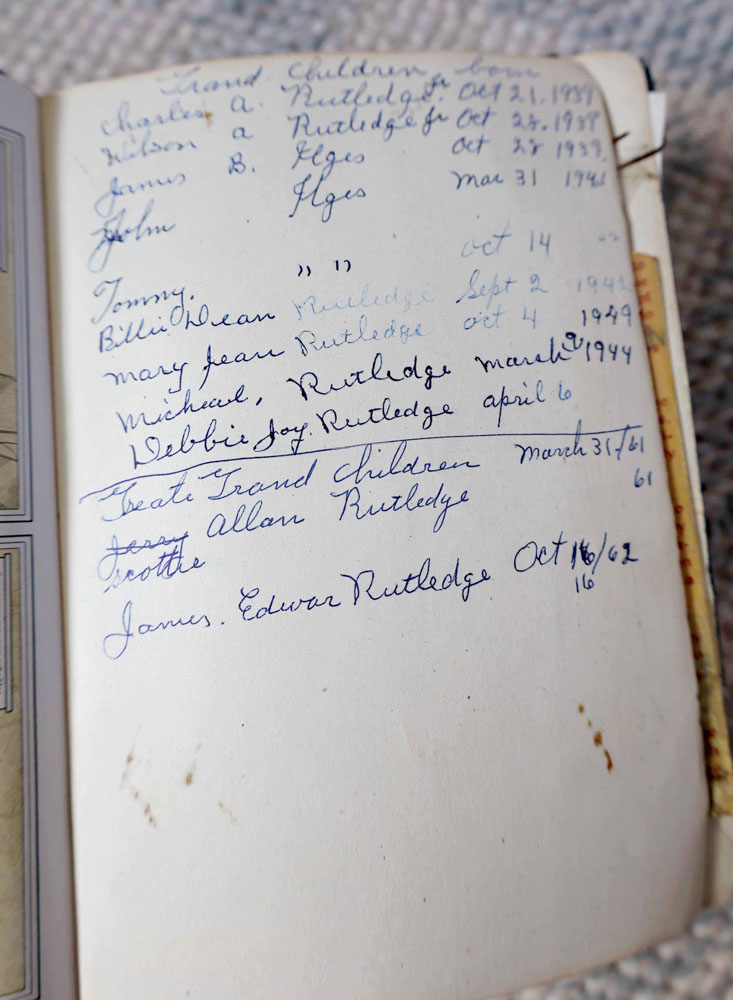 Grand children born
Charles A. Rutledge Jr. Oct 21. 1939
Wilson a Rutledge Jr Oct 28. 1938
James B. Ilges Oct 28 1939.
John Ilges Mar 31 1941
Tommy. " " Oct 14
Billie Dean Rutledge Sept 2 1942
Mary Jean Rutledge Oct 4 1949
Micheael, Rutledge March 1944
Debbie Joy Rutledge april 6
Greate Grand Children March 31/61
Jerry Allan Rutledge 61
scottie
James. Edwar Rutledge Oct 16/62
16